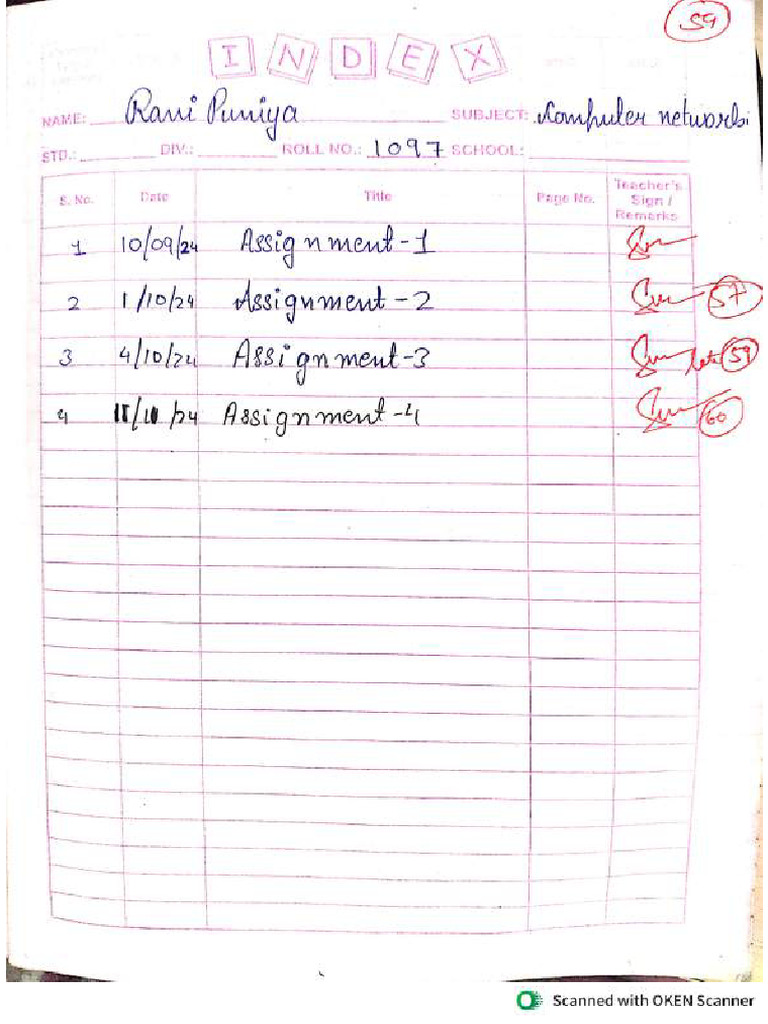 59
INDEX
NAME: Rani Puniya SUBJECT: Computer network
STD.: DIV.: ROLL NO.: 1097 SCHOOL:
S. No. Date Title Page No. Teacher's Sign / Remarks
1 10/09/24 Assignment-1
2 1/10/24 Assignment-2 57
3 4/10/24 Assignment-3 late 59
4 11/10/24 Assignment-4 60
Scanned with OKEN Scanner